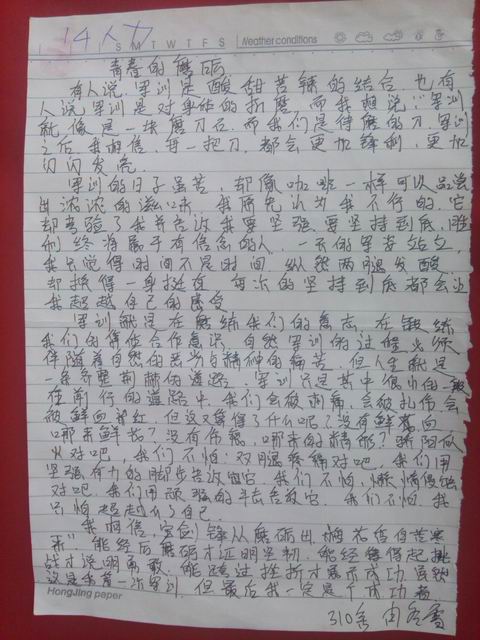 14人力
S M T W T F S Weather conditions
青春的磨砺
有人说军训是酸甜苦辣的结合,也有
人说军训是对身体的折磨,而我想说:军训
就像是一块磨刀石,而我们是待磨的刀,军训
之后我相信,每一把刀,都会更加锋利,更加
闪闪发亮。
军训的日子虽苦,却像咖啡一样可以品尝
出浓浓的滋味,我原先认为我不行的,它
却考验了我并告诉我要坚强要坚持到底,胜
利终将属于有信念的人,一天的军姿站立,
我只觉得时间不是时间,纵然两腿发酸
却换得一身挺直,每次的坚持到底都会让
我超越自己的感受
军训就是在磨练我们的意志,在锻练
我们的团体合作意识,自然军训的过程必须
伴随着自然的恶劣与精神的痛苦,但人生就是
一条布满荆棘的道路,军训只是其中很小的一段
在前行的道路中,我们会被刺痛,会被扎伤会
被鲜血染红,但这又算得了什么呢?没有鲜血
哪来鲜花?没有伤感,哪来的精彩?骄阳似
火对吧,我们不怕:双腿疼痛对吧,我们用
坚强有力的脚步告诉它,我们不怕,懒惰侵蚀
对吧,我们用顽强的斗志告诉它,我们不怕,我
只怕超越不了自己。
我相信,宝剑锋从磨砺出,梅花香自苦寒
来"能经历磨砺才证明坚韧,能经得起挑
战才说明勇敢,能跨过挫折才展示成功
这是我第一次军训,但最后我一定是个成功者。
HongJing paper
310